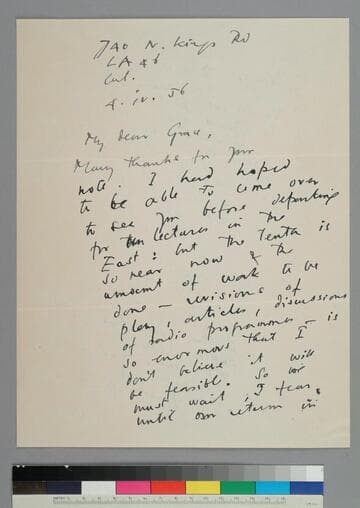 740 N. Kings Rd
LA 46
Cal.
4. iv. 56
My dear Grace,
Many thanks for yr
note. I had hoped
to be able to come over
to see you before departing
for ten lectures in the
East; but the tenth is
so near now & the
amount of work to be
done — revisions of
play, articles, discussions
of radio programmes — is
so enormous that I
don't believe it will
be feasible. So we
must wait, I fear,
until our return in